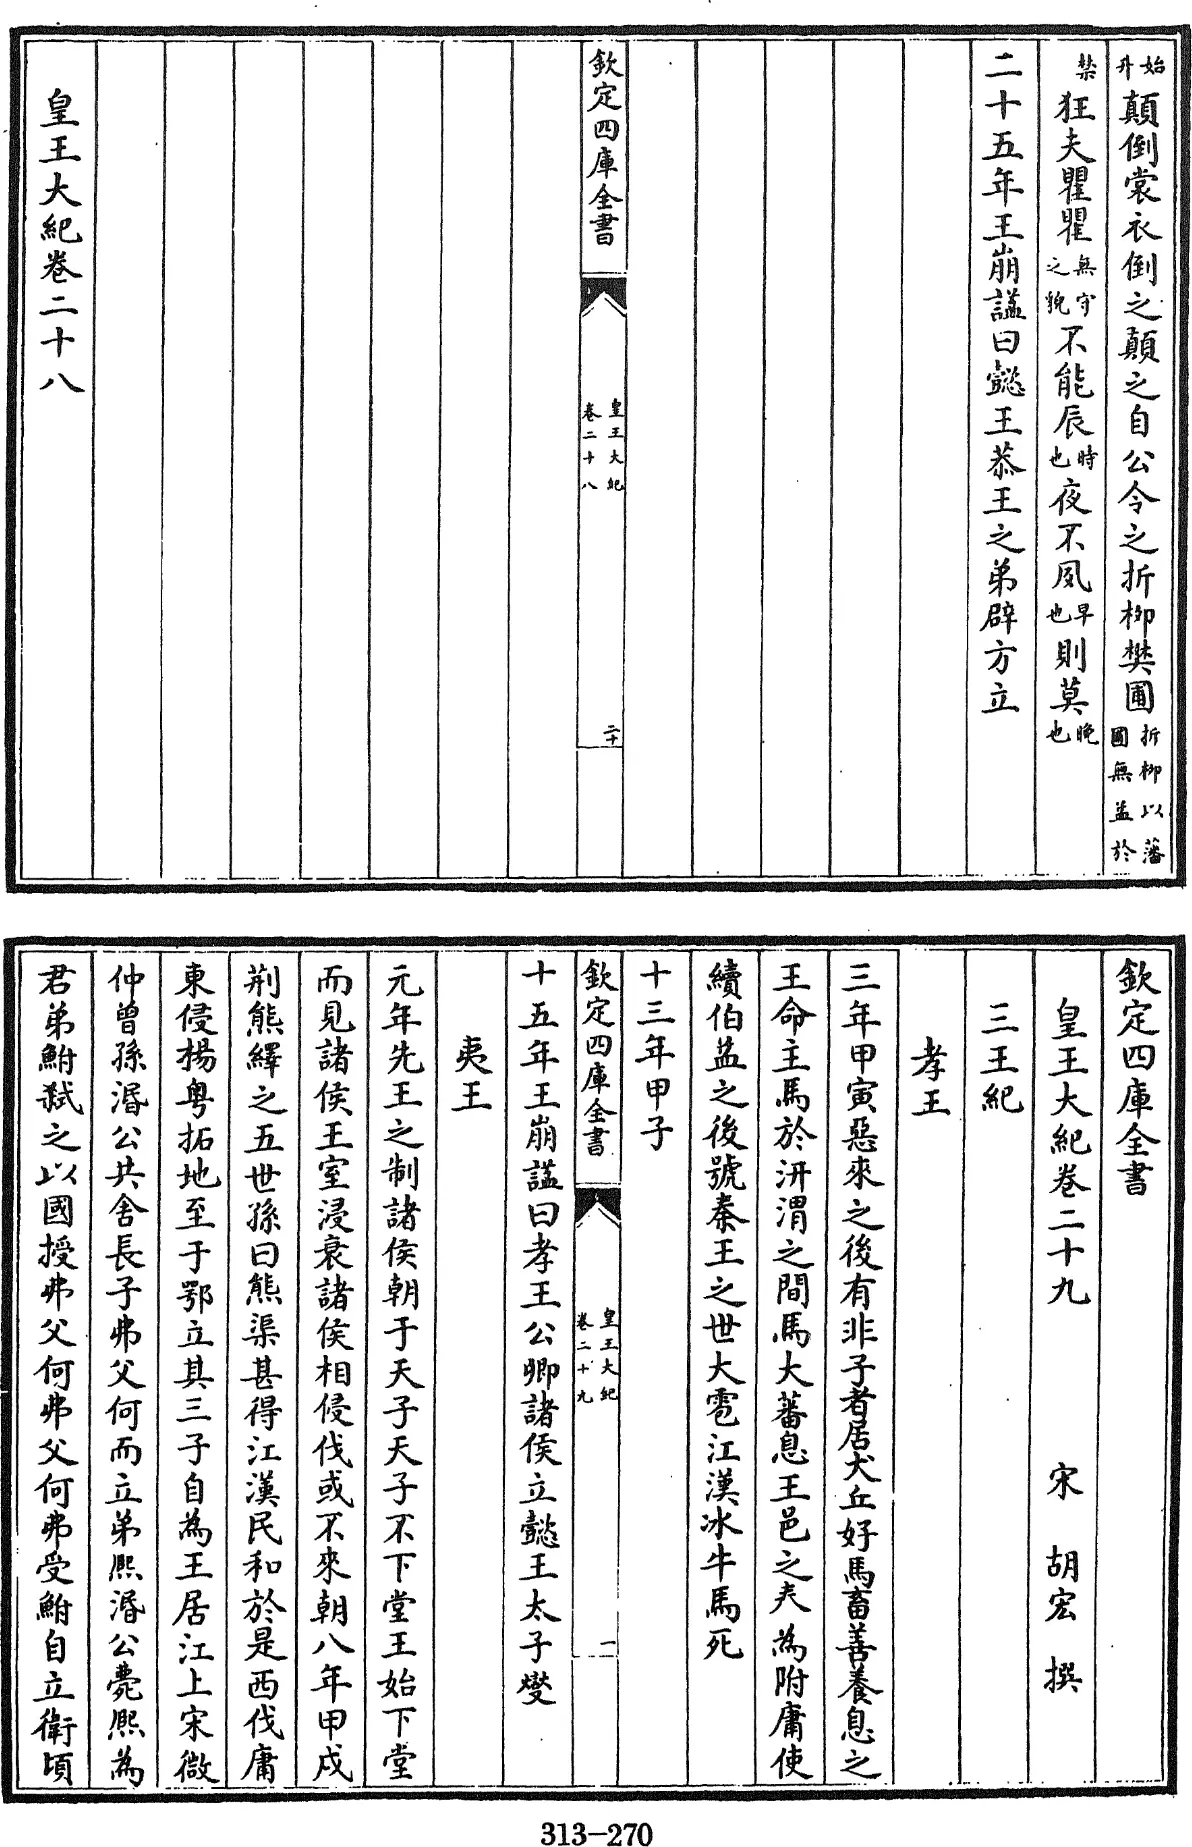 始升顛倒裳衣倒之顛之自公令之折柳樊圃折柳以藩圃無益於
禁狂夫瞿瞿無守之貌不能辰時也夜不夙早也則莫晚也
二十五年王崩諡曰懿王恭王之弟辟方立
欽定四庫全書
皇王大紀
卷二十八
二十
皇王大紀卷二十八
欽定四庫全書
皇王大紀卷二十九
宋 胡宏 撰
三王紀
孝王
三年甲寅惡來之後有非子者居犬丘好馬畜善養息之
王命主馬於汧渭之間馬大蕃息王邑之
為附庸使
續伯益之後號秦王之世大雹江漢冰牛馬死
十三年甲子
欽定四庫全書
皇王大紀
卷二十九
一
十五年王崩諡曰孝王公卿諸侯立懿王太子燮
夷王
元年先王之制諸侯朝于天子天子不下堂王始下堂
而見諸侯王室浸衰諸侯相侵伐或不來朝八年甲戌
荆熊繹之五世孫曰熊渠甚得江漢民和於是西伐庸
東侵楊粤拓地至于鄂立其三子自為王居江上宋微
仲曾孫湣公共舍長子弗父何而立弟熈湣公薨熈為
君弟鮒弑之以國授弗父何弗父何弗受鮒自立衛頃
313-270